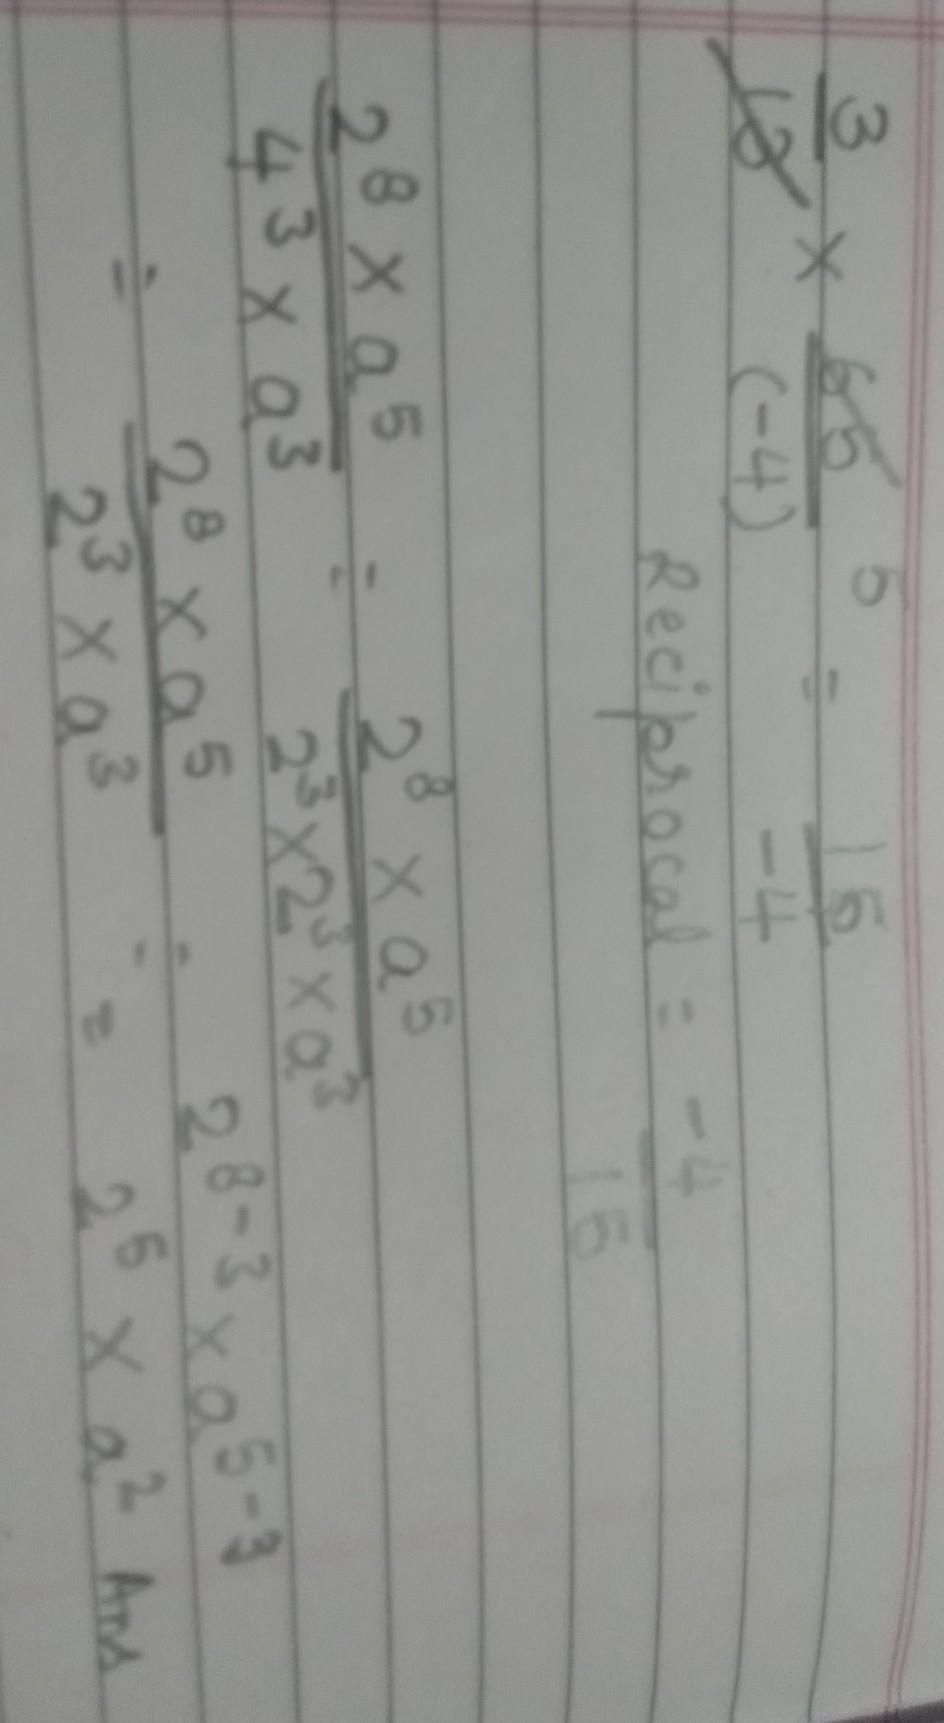 3/13 × 65/(-4) 5 = 15/-4
Reciprocal = -4/15
2⁸ × a⁵ / 4³ × a³ = 2⁸ × a⁵ / 2³ × 2³ × a³
= 2⁸ × a⁵ / 2³ × a³ = 2⁸⁻³ × a⁵⁻³
= 2⁵ × a² Ans